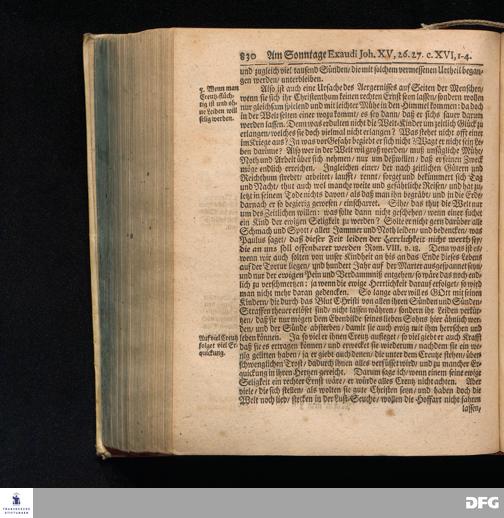 830 Am Sonntage Exaudi Joh. XV, 26. 27. c. XVI, 1-4.
und zugleich viel tausend Sünden / die mit solchem vermessenen Urtheil began-
gen werden / unterbleiben.
5. Wenn man
Creutz-flüch-
tig ist und oh-
ne Leiden will
selig werden.
Also ist auch eine Ursache des Aergernisses auf Seiten der Menschen /
wenn sie sich ihr Christenthum keinen rechten Ernst seyn lassen / sondern wollen
nur gleichsam spielend und mit leichter Mühe in den Himmel kommen: da doch
in der Welt selten einer wozu kommt / es sey dann / daß er sichs sauer darum
werden lassen. Denn was erdulten nicht die Welt-Kinder um zeitlich Glück zu
erlangen / welches sie doch vielmal nicht erlangen? Was stehet nicht offt einer
im Kriege aus? In was vor Gefahr begiebt er sich nicht? Wagt er nicht sein Le-
ben darüme? Also wer in der Welt wil groß werden / muß unsägliche Mühe /
Noth und Arbeit über sich nehmen / nur um deßwillen / daß er seinen Zweck
möge endlich erreichen. Ingleichen einer / der nach zeitlichen Gütern und
Reichthum strebet / arbeitet / laufft / rennt / sorget und bekümmert sich Tag
und Nacht / thut auch wol manche weite und gefährliche Reisen / und hat zu-
letzt in seinem Tode nichts davon / als daß man ihn begräbt / und in die Erde /
darnach er so begierig geworfen / einscharret. Sihe / das thut die Welt nur
um des Zeitlichen willen: was solte dann nicht geschehen / wenn einer suchet
ein Kind der ewigen Seligkeit zu werden? Solte er nicht gern darüber alle
Schmach und Spott / allen Jammer und Noth leiden / und bedencken / was
Paulus saget / daß dieser Zeit leiden der Herrlichkeit nicht werth sey /
die an uns soll offenbaret werden Rom. VIII. v. 18. Denn was ist es /
wenn wir auch solten von unser Kindheit an bis an das Ende dieses Lebens
auf der Tortur liegen / und hundert Jahr auf der Marter ausgespannet seyn /
und nur der ewigen Pein und Verdammniß entgehen / so wäre das noch end-
lich zu verschmertzen: ja wenn die ewige Herrlichkeit darauf erfolget / so wird
man nicht mehr daran gedencken. So lange aber will es GOtt mit seinen
Kindern / die durch das Blut Christi von allen ihren Sünden und Sünden-
Straffen theuer erlöset sind / nicht lassen währen / sondern ihr Leiden verkür-
tzen / daß sie nur mögen dem Ebenbilde seines lieben Sohns hier ähnlich wer-
den / und der Sünde absterben / damit sie auch ewig mit ihm herrschen und
Auf viel Creutz
folget viel Er-
quickung.
leben können. Ja so viel er ihnen Creutz aufleget / so viel giebt er auch Krafft
daß sie es ertragen können / und erwecket sie wiederum / nachdem sie ein we-
nig gelitten haben / ja er giebt auch denen / die unter dem Creutze stehen / über-
schwenglichen Trost / dadurch ihnen alles versüsset wird / und zu mancher Er-
quickung in ihren Hertzen gereicht. Darum sage ich / wenn einem seine ewige
Seligkeit ein rechter Ernst wäre / er würde alles Creutz nicht achten. Aber
viele / die sich stellen / als wolten sie gute Christen seyn / und haben doch die
Welt noch lieb / stecken in der Lust-Seuche / wollen die Hoffart nicht fahren
lassen /
FRANCKESCHE
STIFTUNGEN
DFG